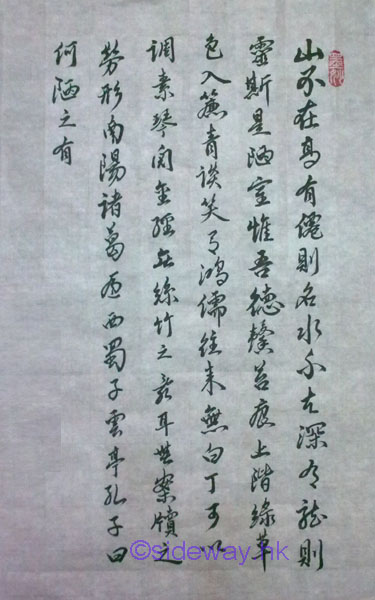 山不在高有僊則名水不在深有龍則
靈斯是陋室惟吾德馨苔痕上階綠草
色入簾青談笑有鴻儒往来無白丁可以
调素琴閱金經無絲竹之亂耳無案牘之
勞形南陽諸葛廬西蜀子雲亭孔子曰
何陋之有
©sideway.hk